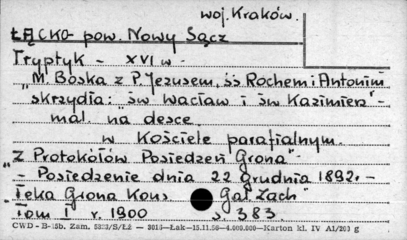 woj. Kraków.
ŁĄCKO pow. Nowy Sącz
Tryptyk - XVI w -
"M. Boska z P. Jezusem, śś Rochem i Antonim
skrzydła: "św Wacław i św Kazimierz" -
mal. na desce.
w Kościele parafialnym.
"Z Protokółów Posiedzeń Grona"
- Posiedzenie dnia 22 grudnia 1892r -
"Teka Grona Kons Gal Zach"
Tom I r. 1900 s. 383.
CWD - B-15b. Zam. S/Łż — Łak—15.11.56—4.000.000—Karton kl. IV A1/200 g